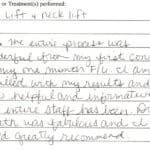 or Treatment(s) performed:
Lift & neck lift
The entire process was
derful from my first cons
my one month F/U. I am
illed with my results and
o helpful and informative
entire staff has been. D
th was fabulous and I
d greatly recommend